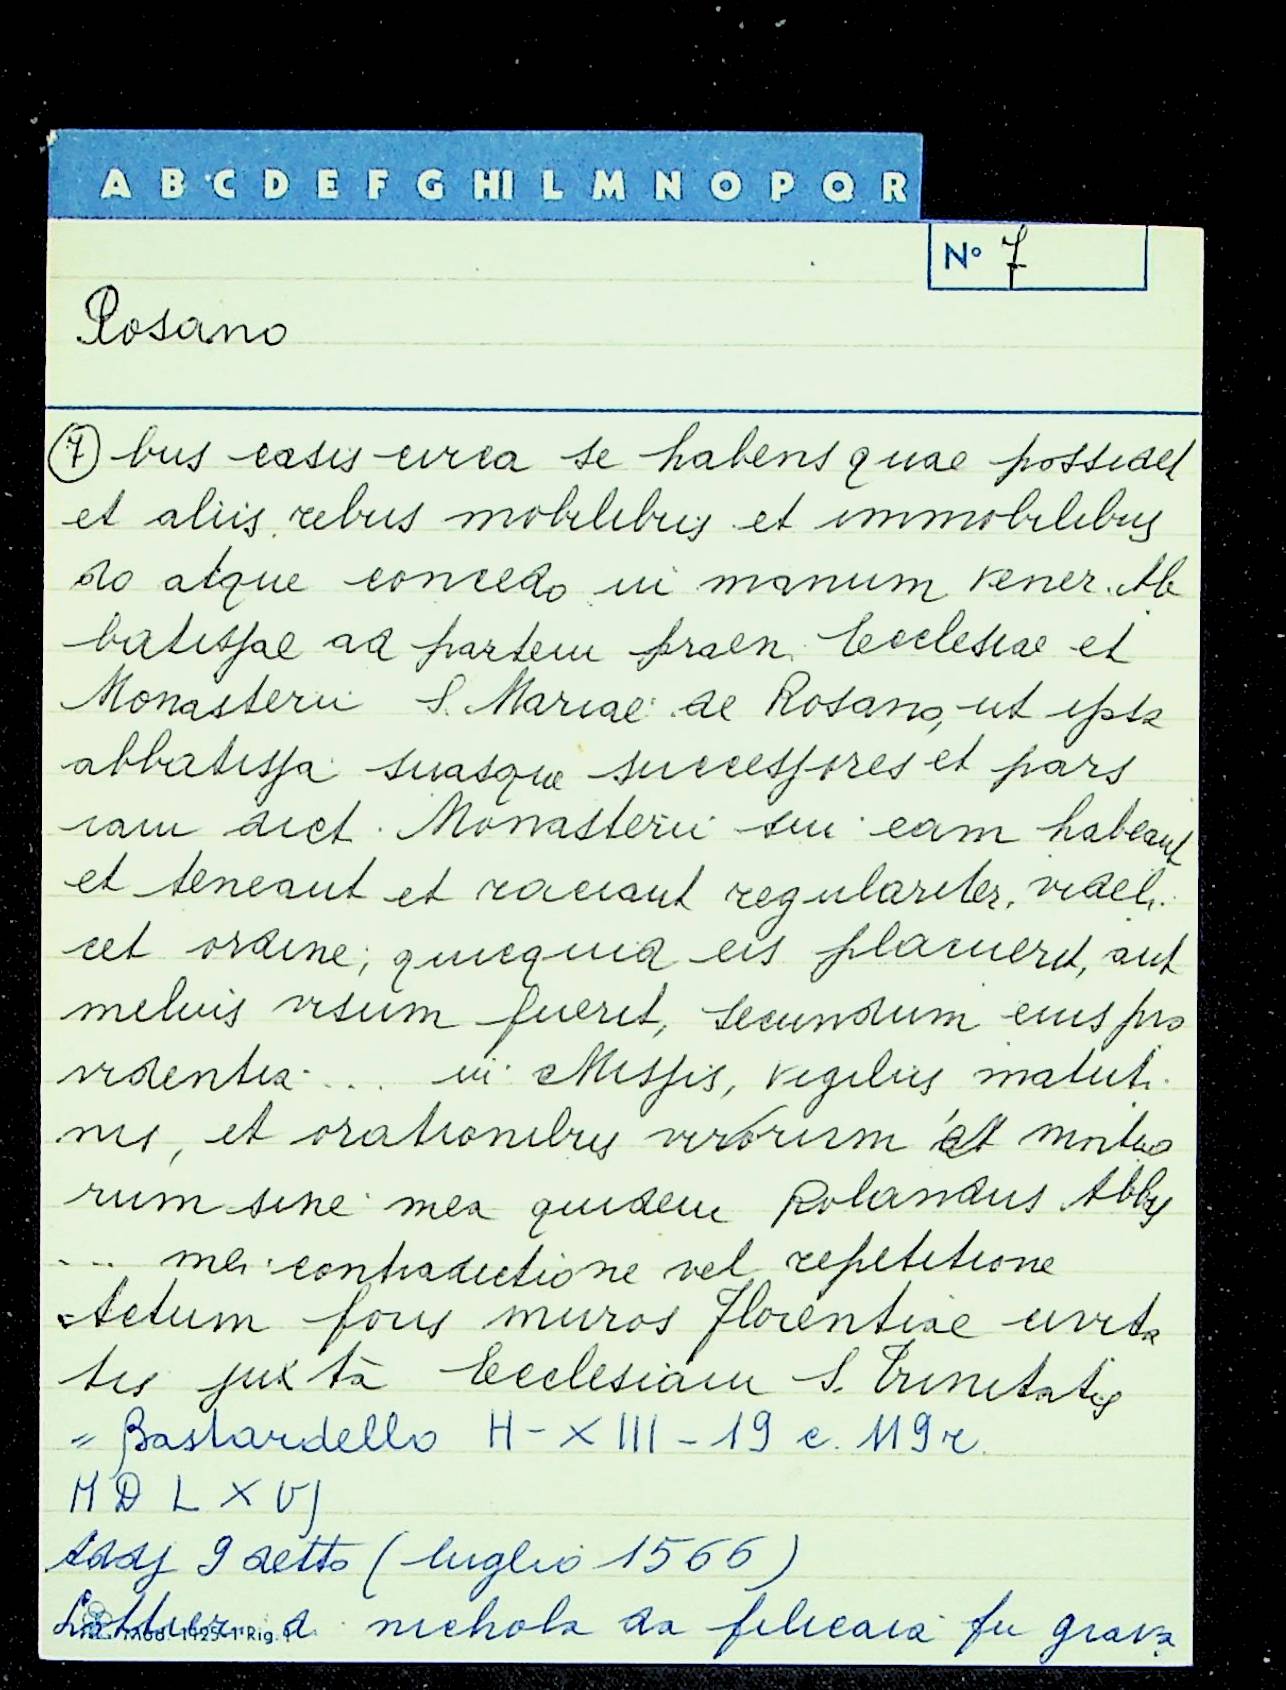 A B C D E F G HI L M N O P Q R
N° 7
Rosano
(7) bus casis circa se habens quae possidet
et aliis rebus mobilibus et immobilibus
do atque concedo in manum vener. Ab
batissae ad partem praen. Ecclesiae et
Monasterii S. Mariae de Rosano, ut ipsa
abbatissa suasque successores et pars
iam dict. Monasterii sui eam habeant
et teneant et faciant regulariter, videli.
cet ordine, quicquid eis placuerit, aut
melius visum fuerit, secundum eius pro
videntia .... in Missis, vigiliis matuti.
nis, et orationibus vivorum et mortuo
rum sine mea quidem Rolandus Abbs
... mei contradictione vel repetitione
Actum foris muros Florentiae civita
tis juxta Ecclesiam S. Trinitatis
= Bastardello H-XIII-19 c. 119 r.
MDLXVJ
Addj 9 detto (luglio 1566)
d. nichola da filicaia fu grava
Mod. 1125-1 Rig.